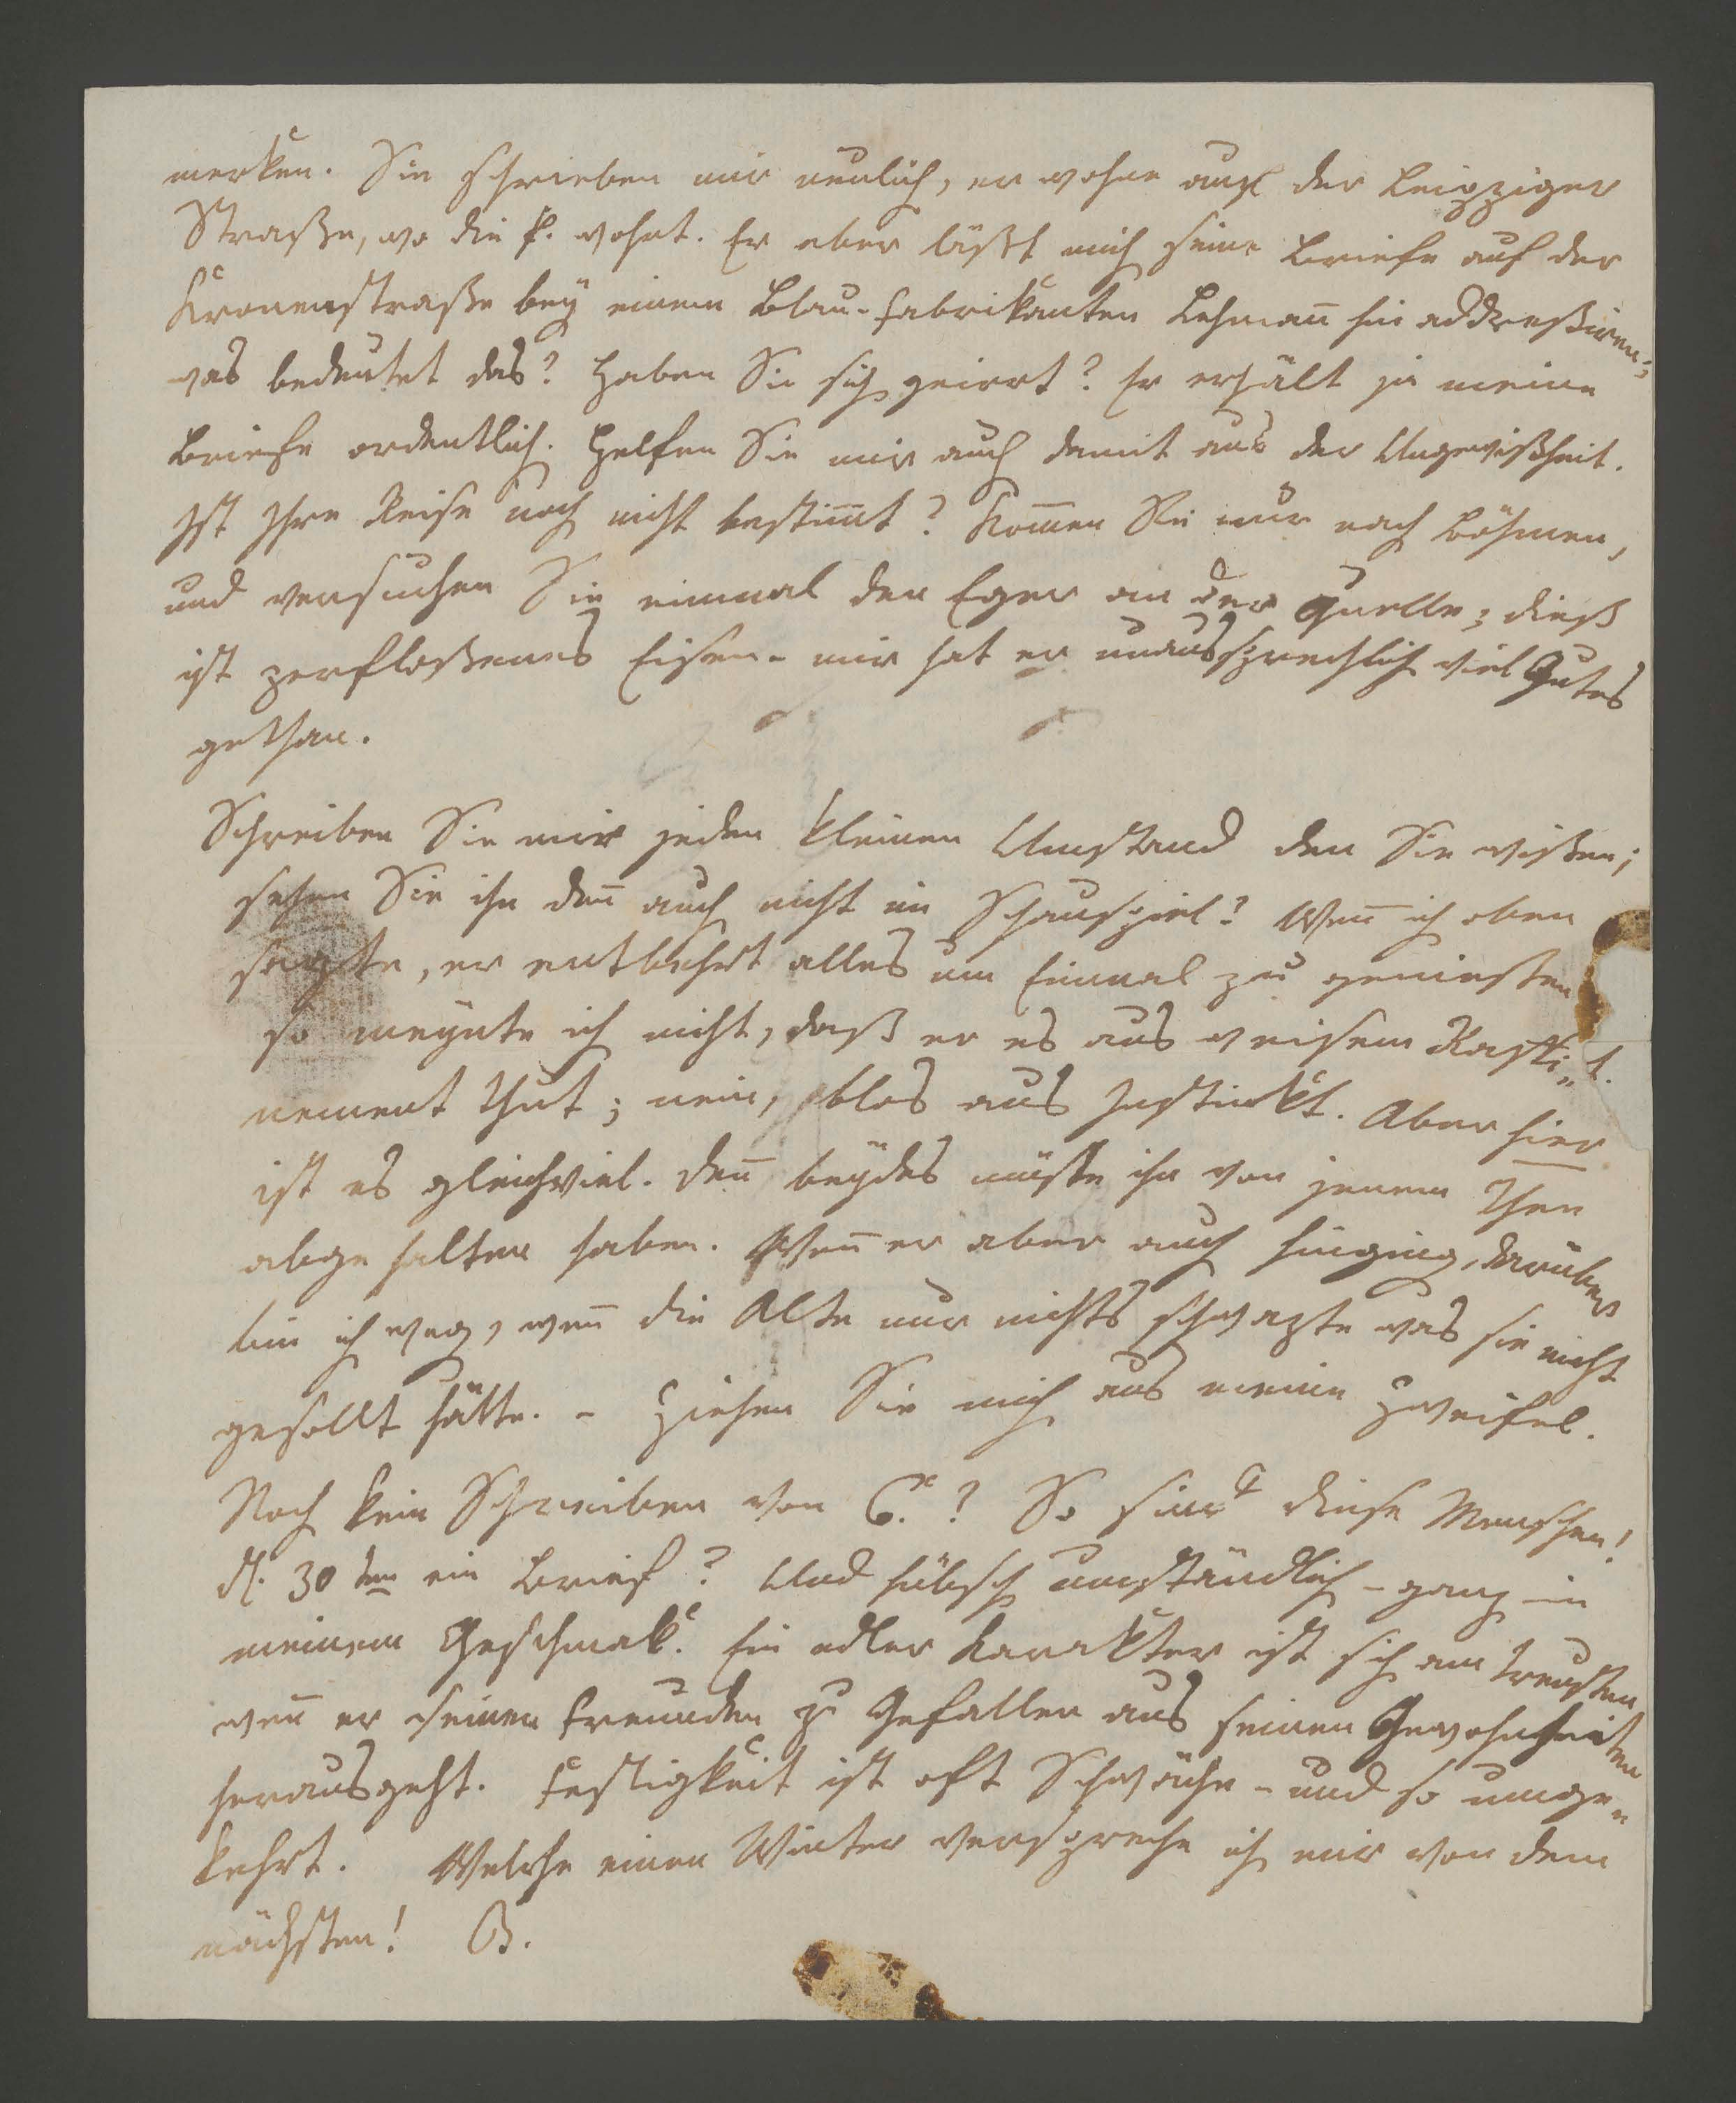 merken. Sie schrieben mir neulich, er wohne auf der Leipziger
Straße, wo die F. wohnt. Er aber läßt mich seine Briefe auf der
Kronenstraße bey einem Blau-Fabrikanten Lehmañ hin addreßiren;
was bedeutet das? Haben Sie sich geirrt? Er erhält ja meine
Briefe ordentlich. Helfen Sie mir auch damit aus der Ungewißheit.
Ist Ihre Reise noch nicht bestim̄t? Kom̄en Sie nur nach Böhmen,
und versuchen Sie einmal den Eger an der Quelle; dieß
ist zerfloßenes Eisen - mir hat er unaussprechlich viel Gutes
gethan.
Schreiben Sie mir jeden kleinen Umstand den Sie wißen;
sehen Sie ihn deñ auch nicht im Schauspiel? Weñ ich oben
sagte, er entbehrt alles um Einmal zu genießen
so meynte ich nicht, daß er es aus weisem Raffi„
nement thut; nein, blos aus Instinkt. Aber hier
ist es gleichviel. Deñ beydes müßte ihn von jenem Thee
abgehalten haben. Weñ er aber auch hinging, darüber
bin ich weg, weñ die Alte nur nichts schwazte was sie nicht
gesollt hätte. - Ziehen Sie mich aus meinem Zweifel.
Noch kein Schreiben von G.? So sind diese Menschen!
d. 30ten ein Brief? Und hübsch umständlich - ganz in
meinem Geschmak. Ein edler Karakter ist sich am treusten
weñ er seinen Freunden zu Gefallen aus seinen Gewohnheiten
herausgeht. Festigkeit ist oft Schwäche - und so umge„
kehrt. Welche einen Winter verspreche ich mir von dem
nächsten! B.